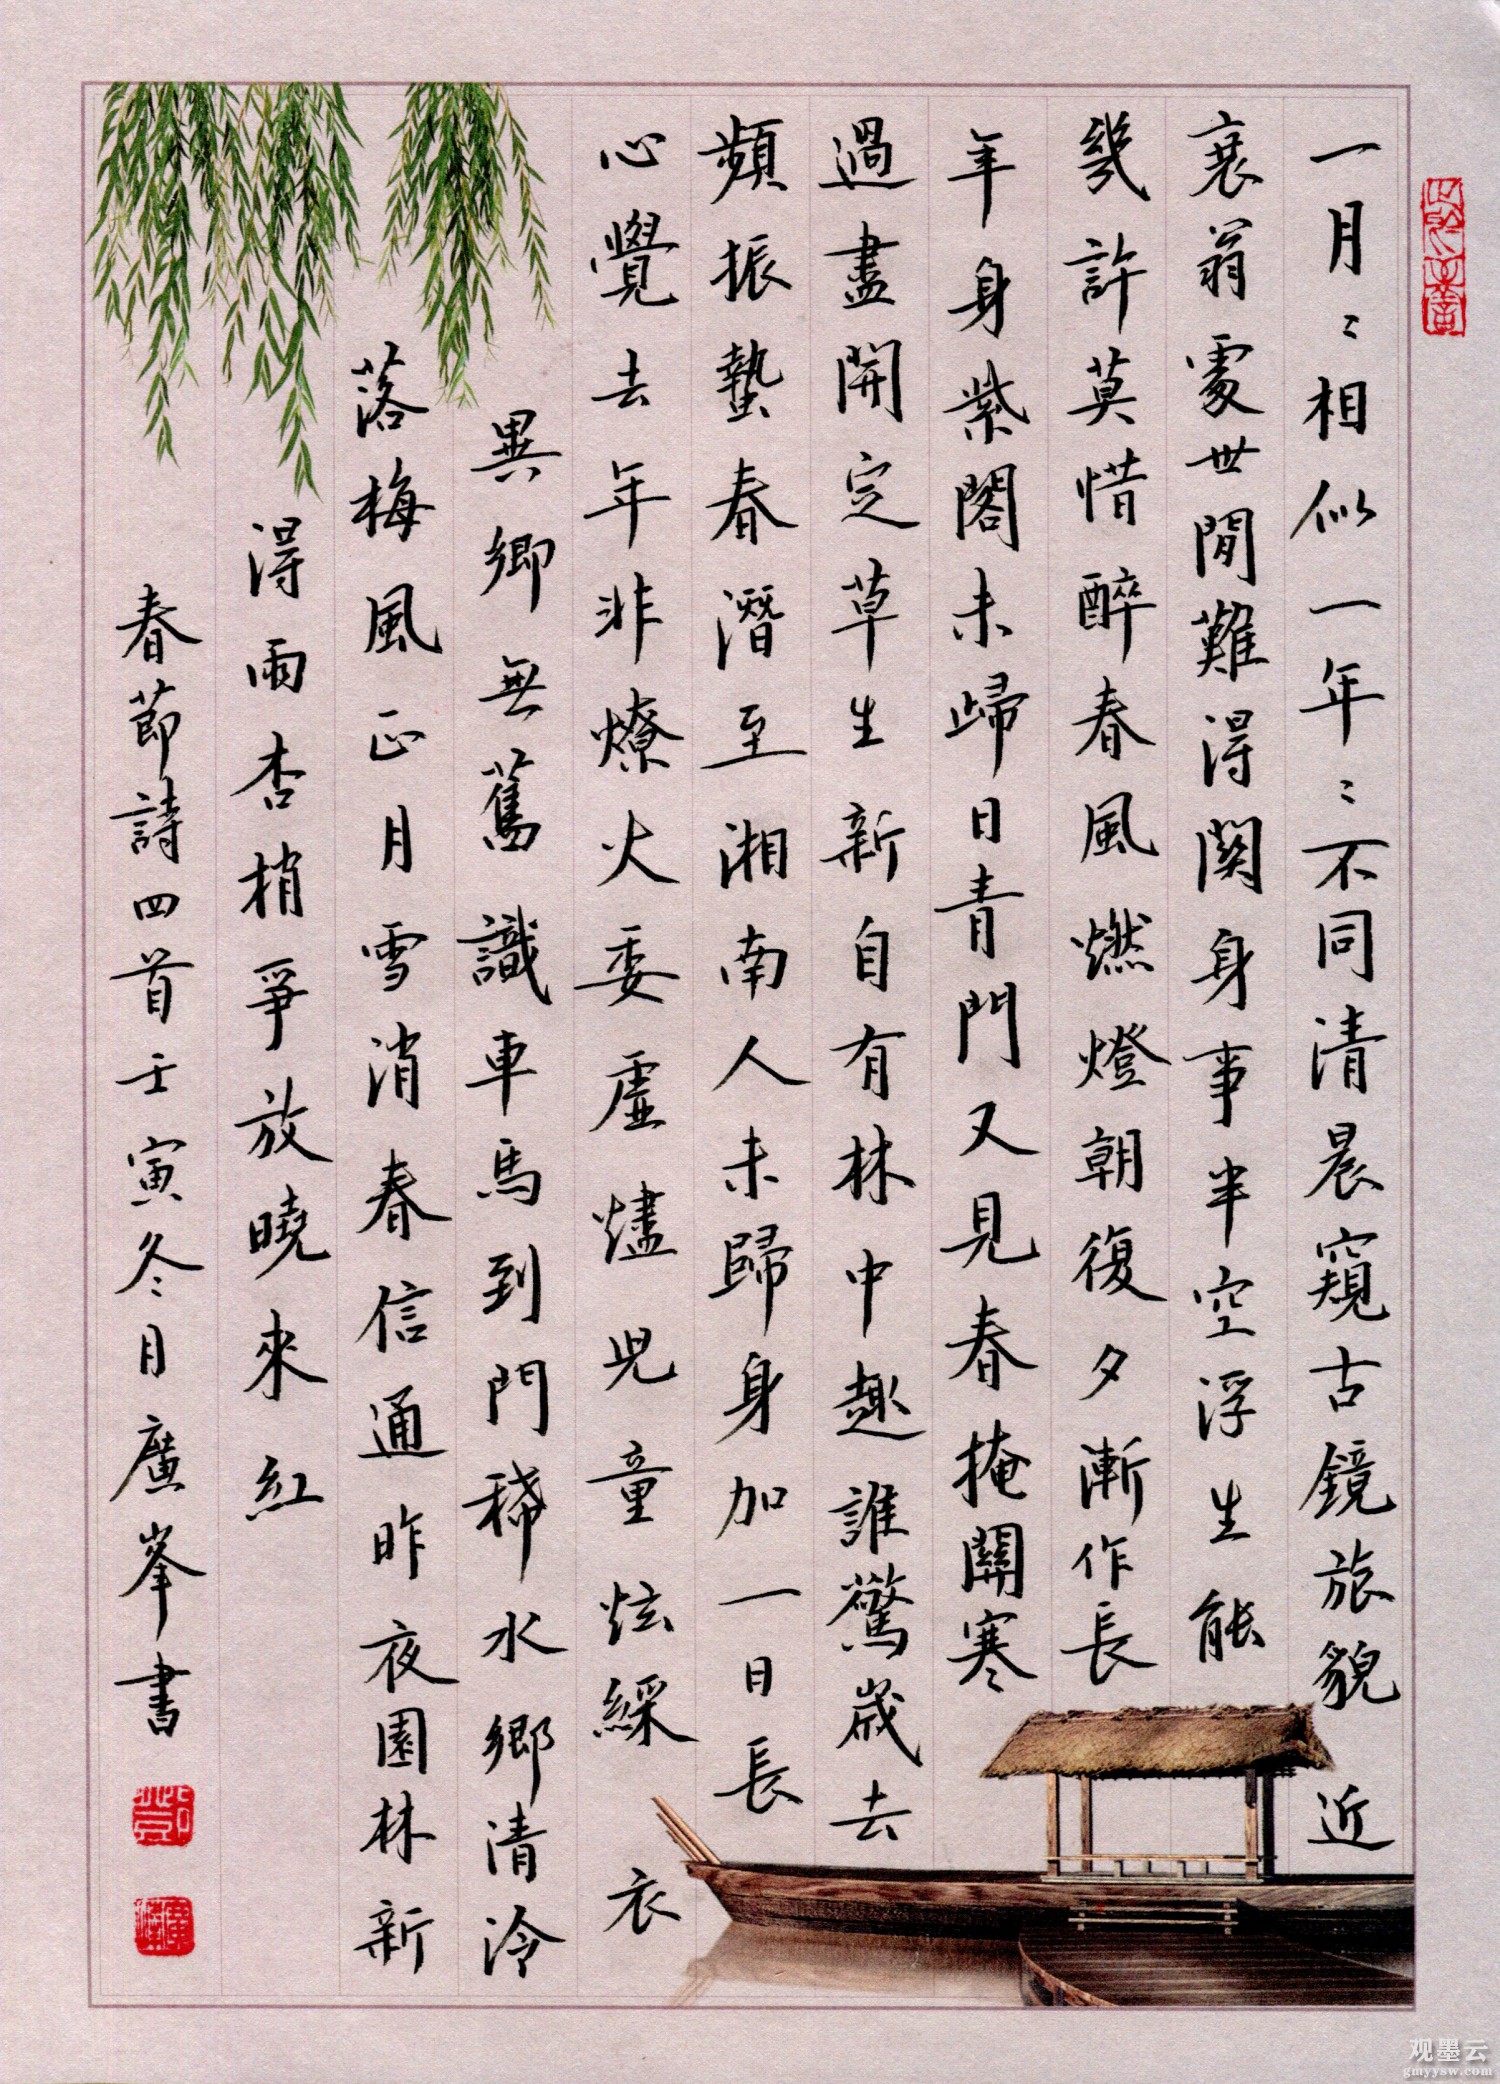 一月〻相似一年〻不同清晨窺古鏡旅貌近
衰翁處世間難得関身事半空浮生能
幾許莫惜醉春風燃燈朝復夕漸作長
年身紫閣未歸日青門又見春掩關寒
過盡開定草生新自有林中趣誰驚歲去
頻振蟄春潛至湘南人未歸身加一日長
心覺去年非燎火委虛燼兒童炫綵衣
異鄉無舊識車馬到門稀水鄉清冷
落梅風正月雪消春信通昨夜園林新
得雨杏梢爭放曉來紅
春節詩四首壬寅冬月廣峯書
观墨云
gmyysw.com